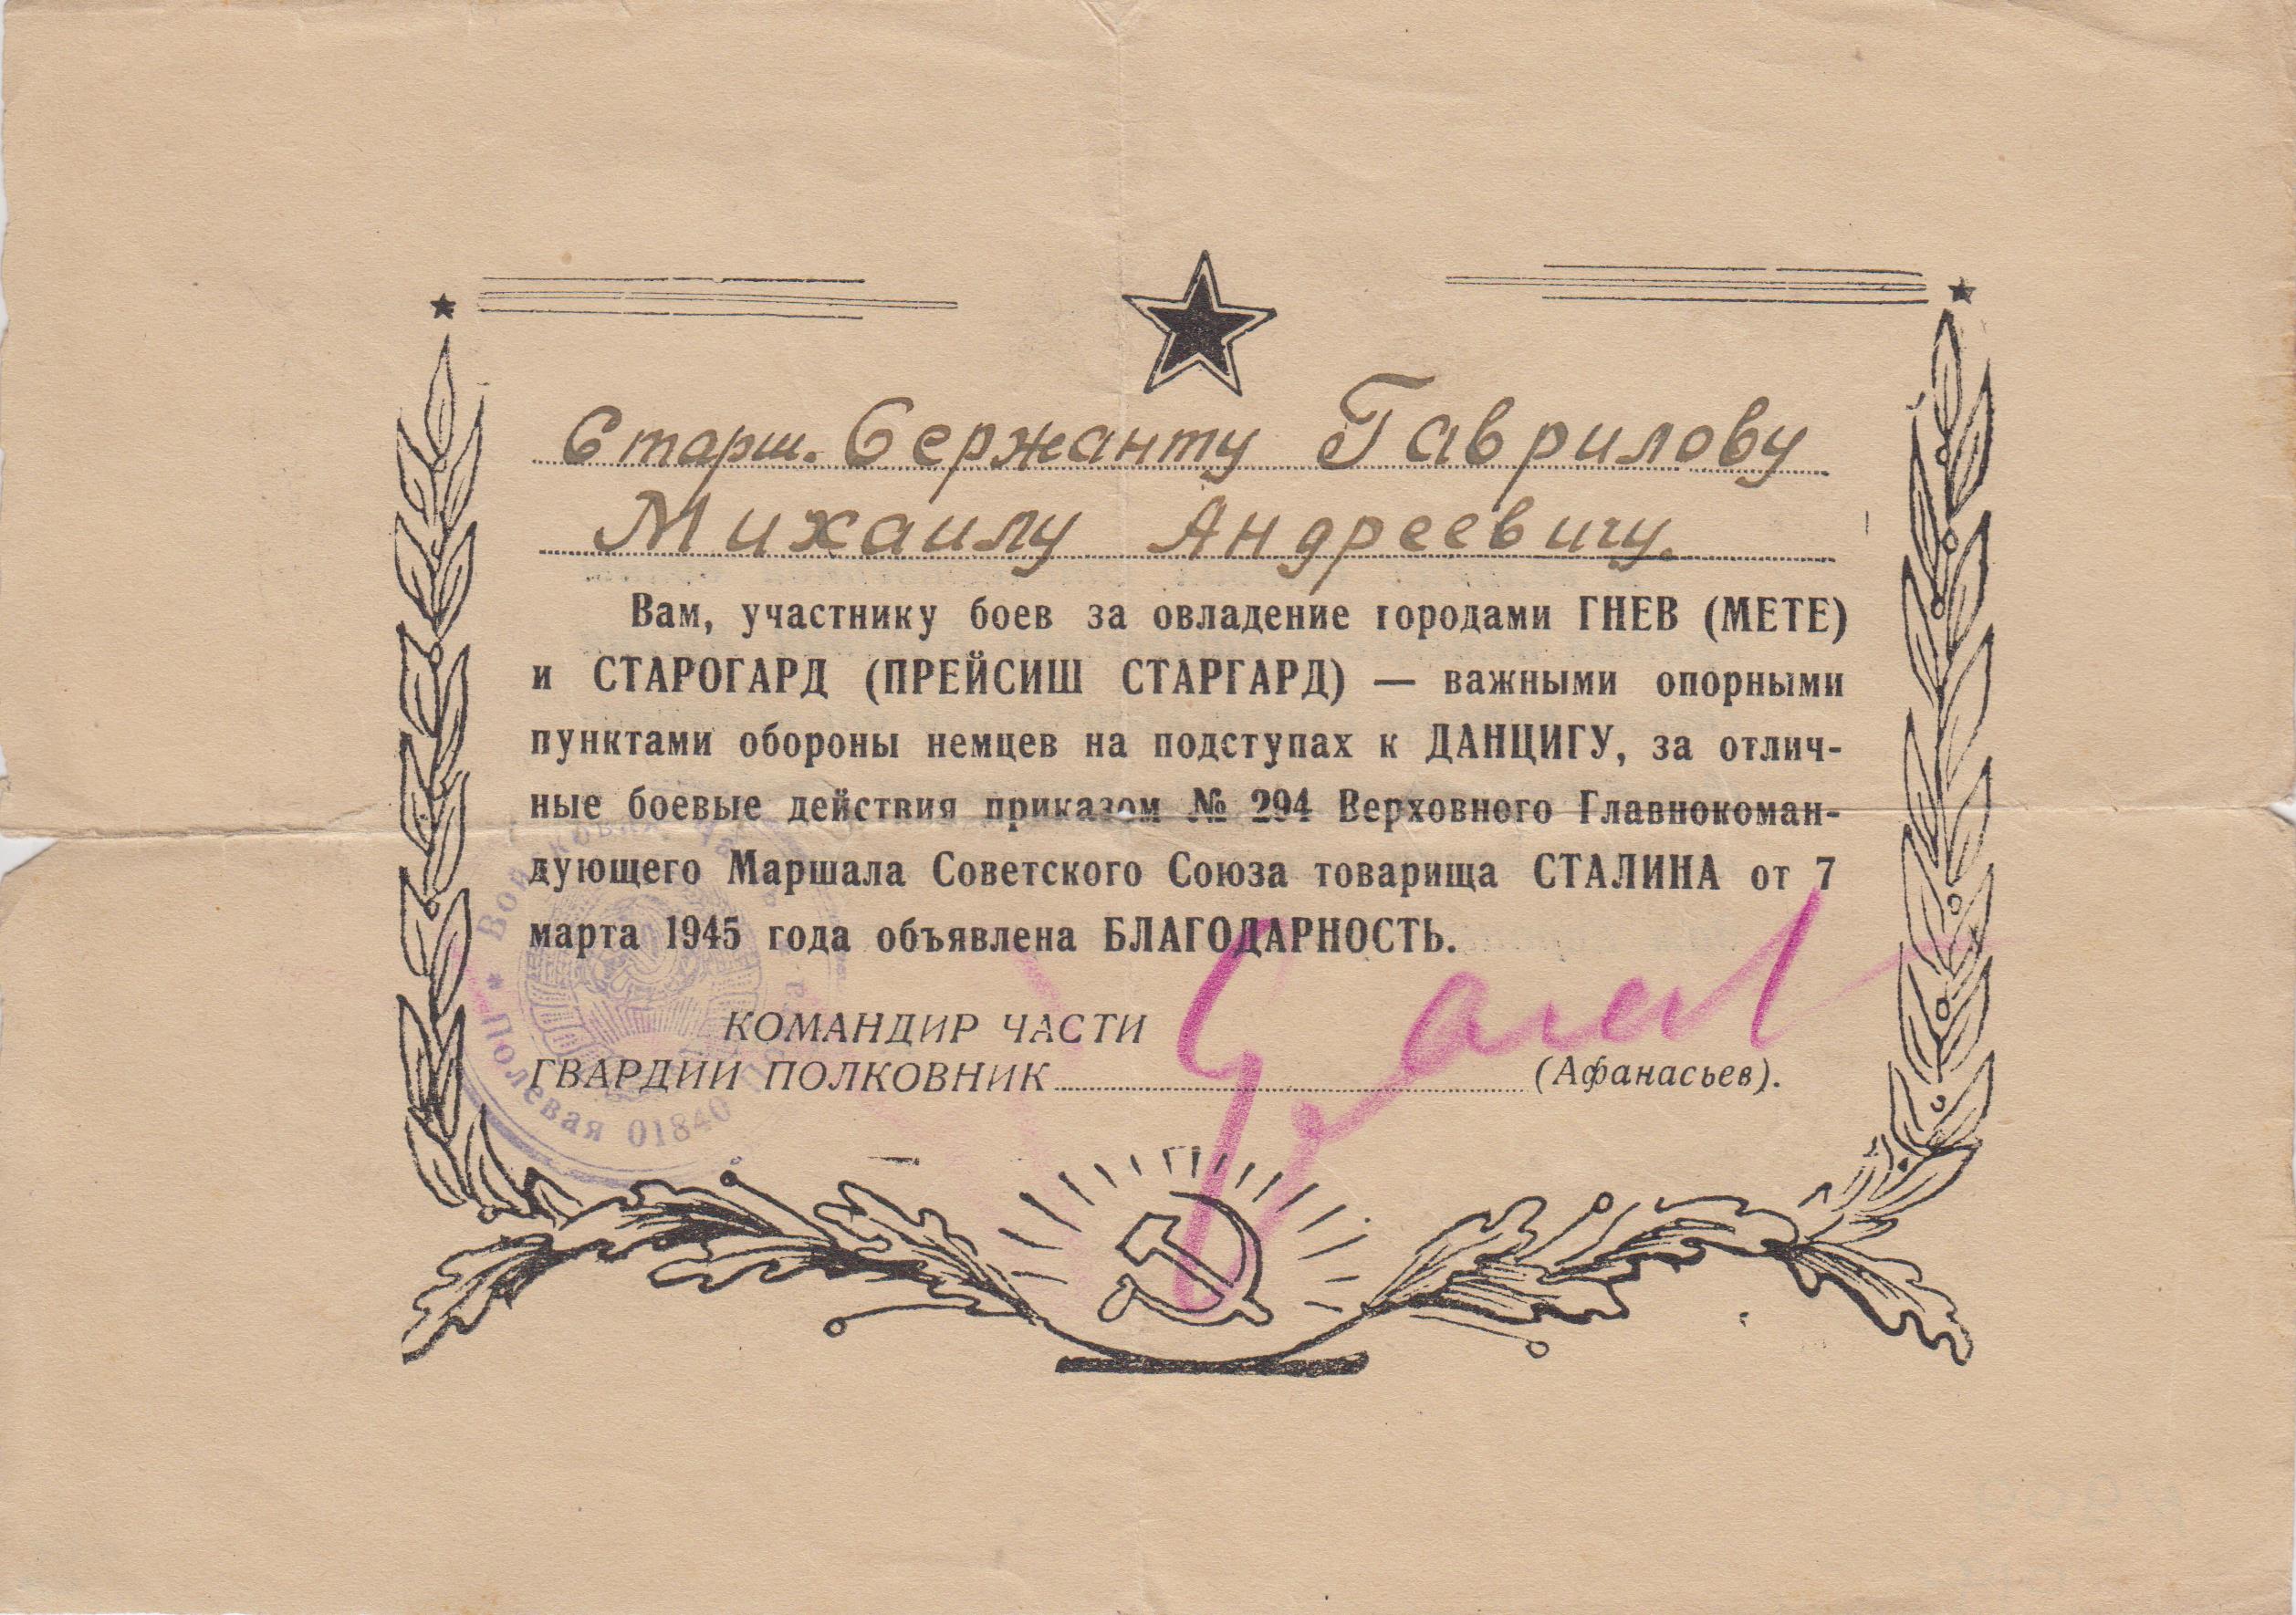 Старш. Сержанту Гаврилову
Михаилу Андреевичу.
Вам, участнику боев за овладение городами ГНЕВ (МЕТЕ)
и СТАРОГАРД (ПРЕЙСИШ СТАРГАРД) — важными опорными
пунктами обороны немцев на подступах к ДАНЦИГУ, за отлич-
ные боевые действия приказом № 294 Верховного Главнокоман-
дующего Маршала Советского Союза товарища СТАЛИНА от 7
марта 1945 года объявлена БЛАГОДАРНОСТЬ.
КОМАНДИР ЧАСТИ
ГВАРДИИ ПОЛКОВНИК (Афанасьев).
Полевая 01840